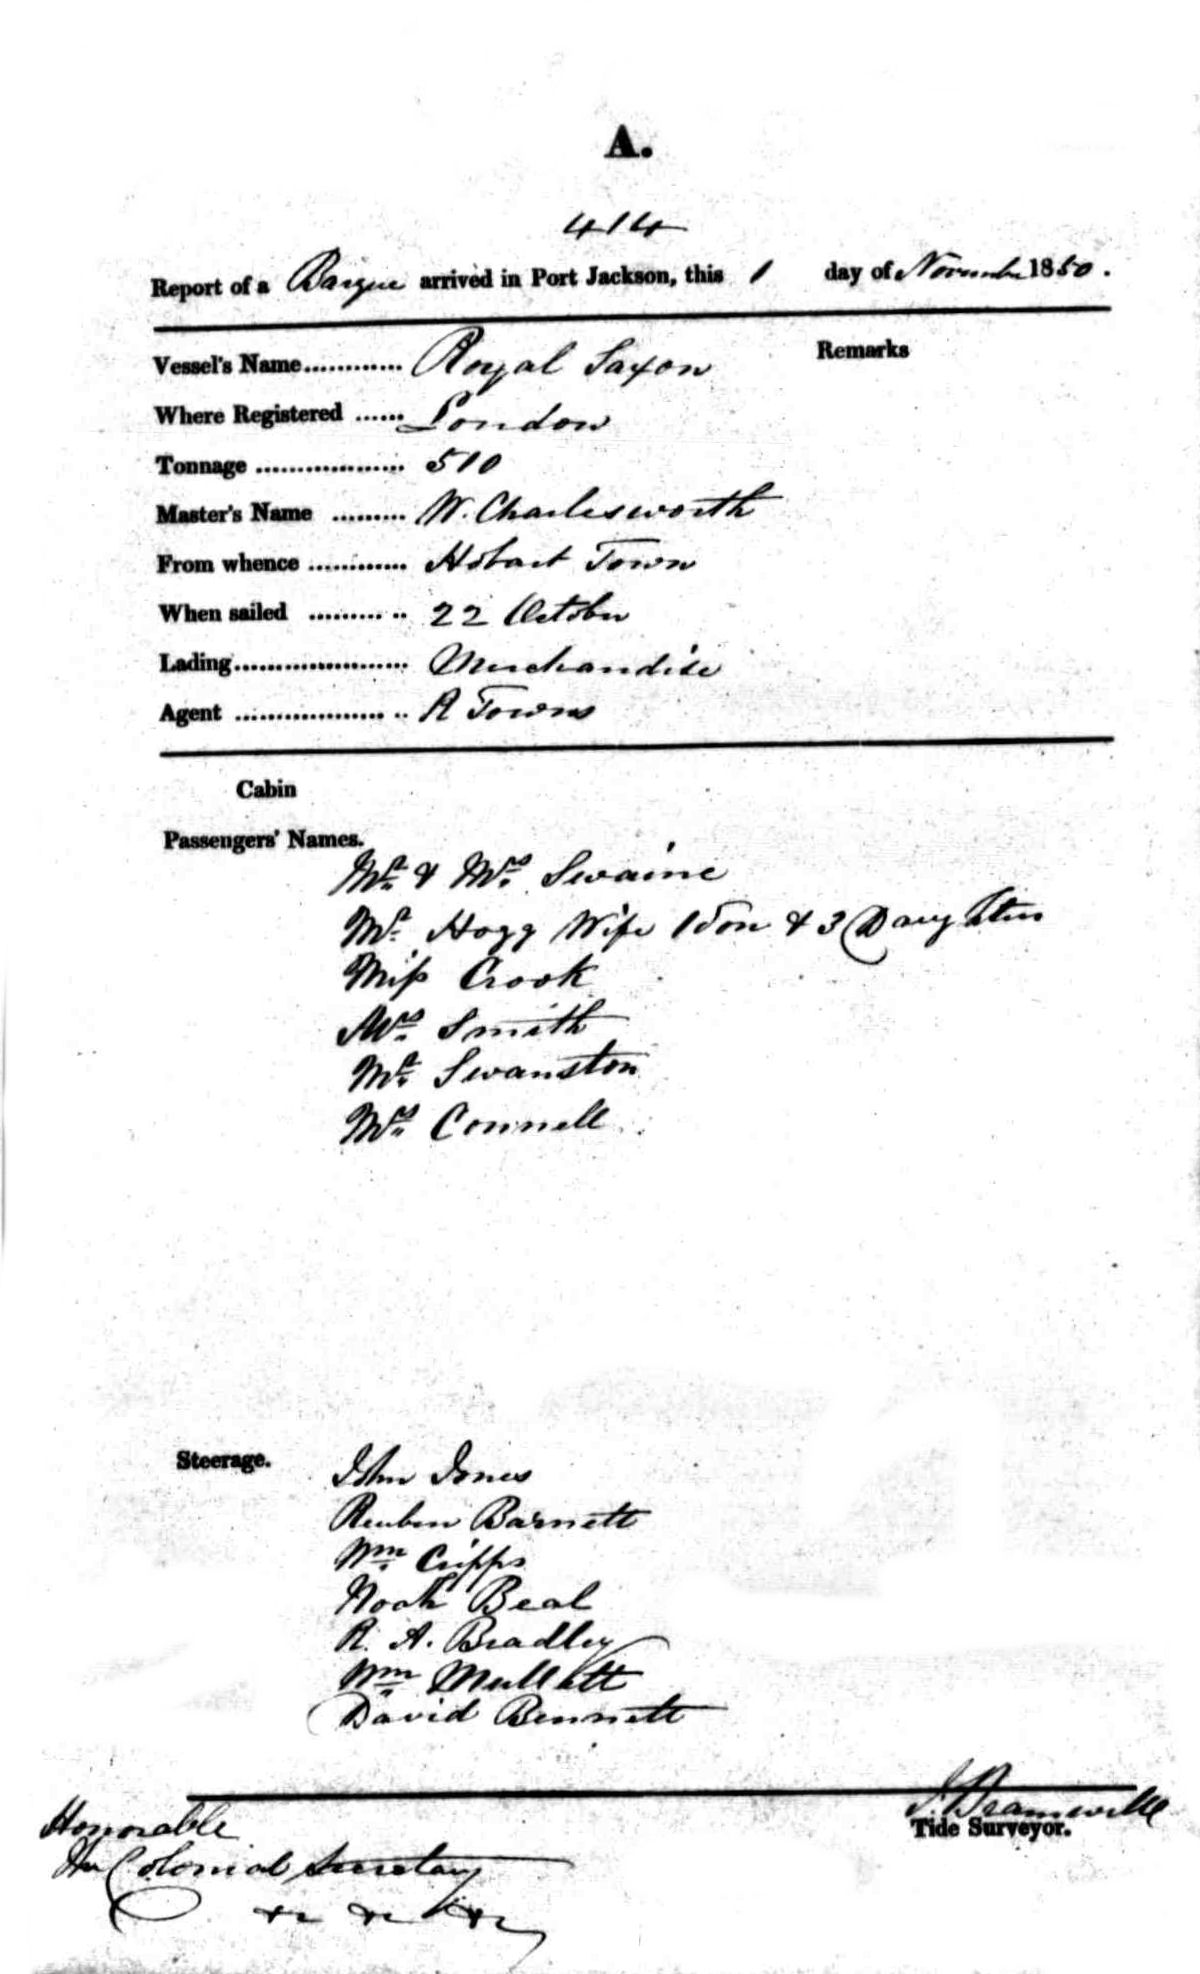 A.
414
Report of a Barque arrived in Port Jackson, this 1 day of November 1850.
Vessel's Name............ Royal Saxon Remarks
Where Registered ...... London
Tonnage .................. 510
Master's Name ......... W. Charlesworth
From whence ............ Hobart Town
When sailed ......... .. 22 October
Lading..................... Merchandise
Agent .................. .. R Towns
Cabin
Passengers' Names.
Mr. & Mrs. Swaine
Mr. Hogg Wife 1 Son & 3 Daughters
Miss Crook
Mrs. Smith
Mr. Swanston
Mrs. Connell
Steerage. John Jones
Reuben Barnett
Wm. Cripps
Noah Beal
R. A. Bradley
Wm. Mullett
David Bennett
J. Bramwell
Tide Surveyor.
Honorable
The Colonial Secretary
&c &c &c